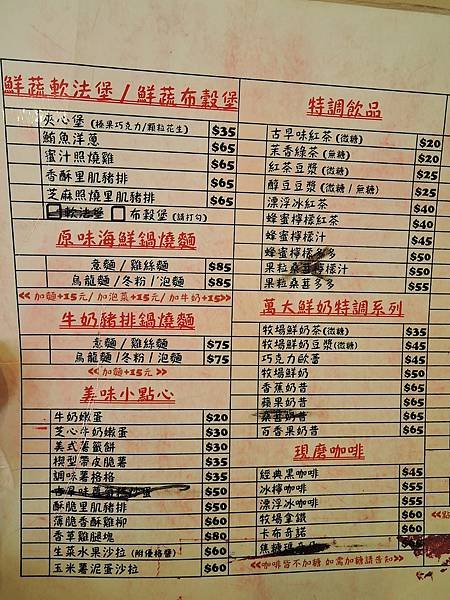 鮮蔬軟法堡 / 鮮蔬布穀堡
夾心堡 (榛果巧克力/顆粒花生) $35
鮪魚洋蔥 $65
蜜汁照燒雞 $65
香酥里肌豬排 $65
芝麻照燒里肌豬排 $65
軟法堡 布穀堡 (請打勾)
原味海鮮鍋燒麵
意麵 / 雞絲麵 $85
烏龍麵 / 冬粉 / 泡麵 $85
<<加麵+15元/ 加泡菜+15元/ 加牛奶+15>>
牛奶豬排鍋燒麵
意麵 / 雞絲麵 $75
烏龍麵 / 冬粉 / 泡麵 $75
<<加麵+15元>>
美味小點心
牛奶嫩蛋 $20
芝心牛奶嫩蛋 $30
美式薯籤餅 $30
楔型帶皮脆薯 $35
調味薯格格 $35
古早味 $50
酥脆里肌豬排 $50
薄脆香酥雞柳 $60
香草雞腿塊 $80
生菜水果沙拉 (附優格醬) $60
玉米薯泥蛋沙拉 $60
特調飲品
古早味紅茶 (微糖) $20
茉香綠茶 (無糖) $20
紅茶豆漿 (微糖) $25
醇豆豆漿 (微糖 / 無糖) $25
漂浮冰紅茶 $40
蜂蜜檸檬紅茶 $40
蜂蜜檸檬汁 $45
蜂蜜檸檬多多 $50
果粒桑葚檸檬汁 $55
果粒桑葚多多 $55
萬大鮮奶特調系列
牧場鮮奶茶(微糖) $35
牧場鮮奶豆漿(微糖) $45
巧克力歐蕾 $45
牧場鮮奶 $50
香蕉奶昔 $65
蘋果奶昔 $65
桑葚奶昔 $65
百香果奶昔 $65
現磨咖啡
經典黑咖啡 $45
冰檸咖啡 $55
漂浮冰咖啡 $55
牧場拿鐵
卡布奇諾
焦糖瑪
<<咖啡皆不加糖 如需加糖請告知>>